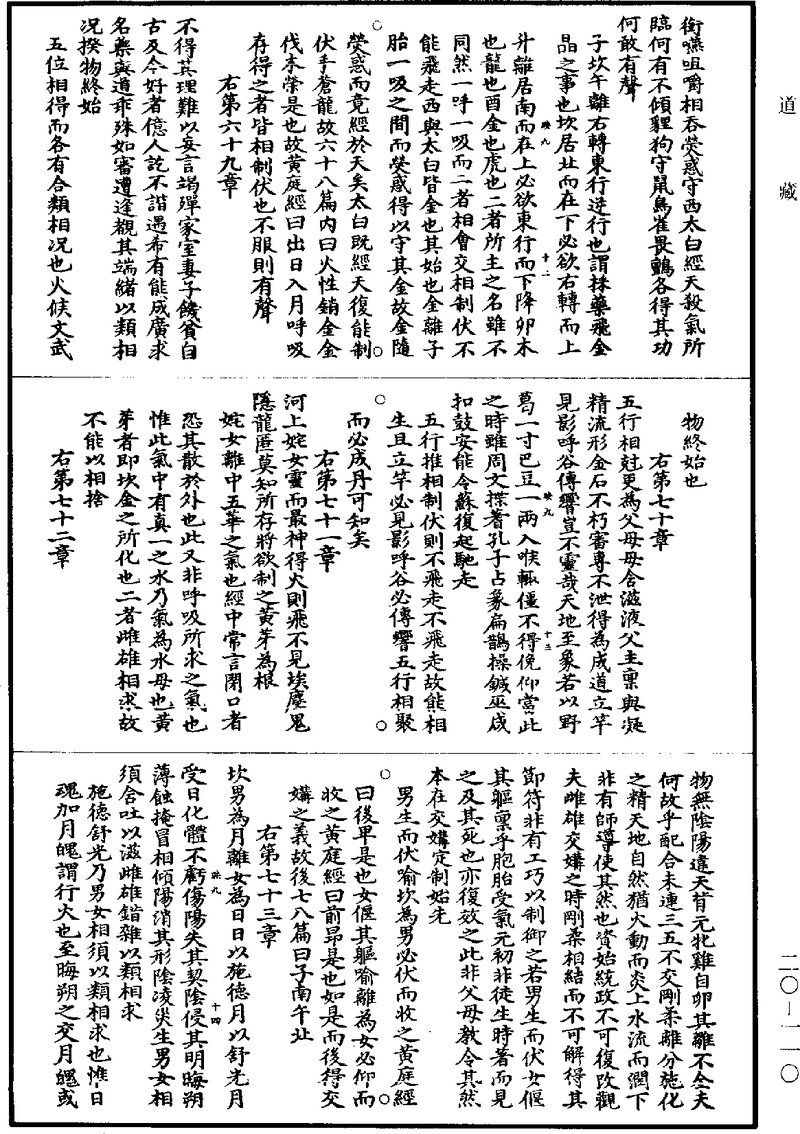 道藏
銜嚥咀嚼相吞熒惑守西太白經天殺氣所
臨何有不傾貍狗守鼠鳥雀畏鸇各得其功
何敢有聲
子坎午離右轉東行逆行也謂採藥飛金
晶之事也坎居北而在下必欲右轉而上
升離居南而在上必欲東行而下降卯木
也龍也酉金也虎也二者所主之名雖不
同然一呼一吸而二者相會交相制伏不
能飛走西與太白皆金也其始也金離子
胎一吸之間而熒惑得以守其金故金隨
熒惑而竟經於天矣太白既經天復能制
伏乎蒼龍故六十八篇內曰火性銷金金
伐木榮是也故黃庭經曰出日入月呼吸
存得之者皆相制伏也不服則有聲
右第六十九章
不得其理難以妄言竭殫家室妻子饑貧自
古及今好者億人訖不諧遇希有能成廣求
名藥與道乖殊如審遭逢覩其端緒以類相
況揆物終始
五位相得而各有合類相況也火候文武
物終始也
右第七十章
五行相尅更為父母母含滋液父主稟與凝
精流形金石不朽審專不泄得為成道立竿
見影呼谷傳響豈不靈哉天地至象若以野
葛一寸巴豆一兩入喉輒僵不得俛仰當此
之時雖周文揲蓍孔子占象扁鵲操鍼巫咸
扣鼓安能令蘇復起馳走
五行推相制伏則不飛走不飛走故能相
生且立竿必見影呼谷必傳響五行相聚
而必成丹可知矣
右第七十一章
河上姹女靈而最神得火則飛不見埃塵鬼
隱龍匿莫知所存將欲制之黃芽為根
姹女離中五華之氣也經中常言閉口者
恐其散於外也此又非呼吸所求之氣也
惟此氣中有真一之水乃氣為水母也黃
芽者即坎金之所化也二者雌雄相求故
不能以相捨
右第七十二章
物無陰陽違天背元牝雞自卵其雛不全夫
何故乎配合未連三五不交剛柔離分施化
之精天地自然猶火動而炎上水流而潤下
非有師導使其然也資始統政不可復改觀
夫雌雄交媾之時剛柔相結而不可解得其
節符非有工巧以制御之若男生而伏女偃
其軀稟乎胞胎受氣元初非徒生時著而見
之及其死也亦復效之此非父母教令其然
本在交媾定制始先
男生而伏喻坎為男必伏而收之黃庭經
曰後畢是也女偃其軀喻離為女必仰而
收之黃庭經曰前昂是也如是而後得交
媾之義故後七八篇曰子南午北
右第七十三章
坎男為月離女為日日以施德月以舒光月
受日化體不虧傷陽失其契陰侵其明晦朔
薄蝕掩冒相傾陽消其形陰凌災生男女相
須含吐以滋雌雄錯雜以類相求
施德舒光乃男女相須以類相求也惟日
魂加月魄謂行火也至晦朔之交月魄或
映九
十二
映九
十三
映九
十四
二〇—一一〇